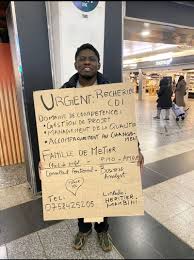 URGENT. RECHERCHE
CDI
DOMAINE DE COMPETENCE:
• GESTION DE PROJET
• MANAGEMENT DE LA QUALITÉ
• ACCOMPAGNEMENT AU CHANGE-
MENT
FAMILLE DE METIER
PMO - AMOA
Consultant Fonctionnel - Business
Analyst
TEL:
LinkedIn:
HERITIER